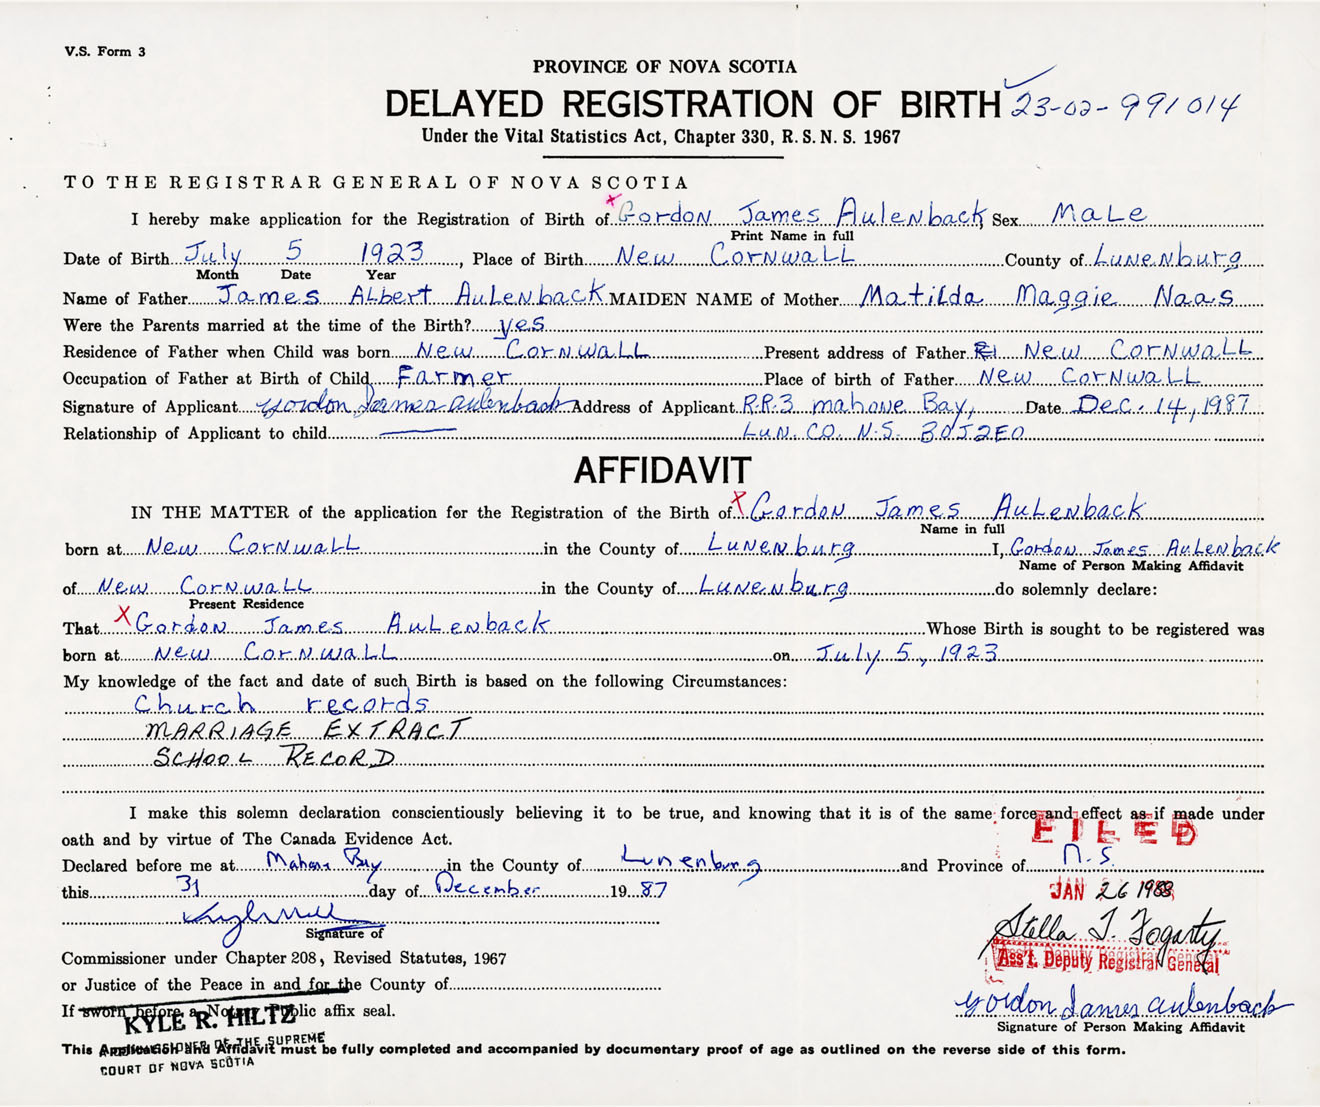 V.S. Form 3
PROVINCE OF NOVA SCOTIA
DELAYED REGISTRATION OF BIRTH 23-02-991014
Under the Vital Statistics Act, Chapter 330, R.S.N.S. 1967
TO THE REGISTRAR GENERAL OF NOVA SCOTIA
I hereby make application for the Registration of Birth of x Gordon James Aulenback, Sex Male
Print Name in full
Date of Birth July 5 1923, Place of Birth New Cornwall County of Lunenburg
Month Date Year
Name of Father James Albert Aulenback MAIDEN NAME of Mother Matilda Maggie Naas
Were the Parents married at the time of the Birth? yes
Residence of Father when Child was born New Cornwall Present address of Father R1 New Cornwall
Occupation of Father at Birth of Child Farmer Place of birth of Father New Cornwall
Signature of Applicant Gordon James Aulenback Address of Applicant R.R.3 Mahone Bay, Date Dec. 14, 1987
Relationship of Applicant to child Lun. Co. N.S. B0J2E0
AFFIDAVIT
IN THE MATTER of the application for the Registration of the Birth of x Gordon James Aulenback
Name in full
born at New Cornwall in the County of Lunenburg I, Gordon James Aulenback
Name of Person Making Affidavit
of New Cornwall in the County of Lunenburg do solemnly declare:
Present Residence
That x Gordon James Aulenback Whose Birth is sought to be registered was
born at New Cornwall on July 5, 1923
My knowledge of the fact and date of such Birth is based on the following Circumstances:
Church records
MARRIAGE EXTRACT
SCHOOL RECORD
I make this solemn declaration conscientiously believing it to be true, and knowing that it is of the same force and effect as if made under
oath and by virtue of The Canada Evidence Act.
FILED
Declared before me at Mahone Bay in the County of Lunenburg and Province of N.S.
this 31 day of December 1987
JAN 26 1988
Signature of
Stella T. Fogarty
Commissioner under Chapter 208, Revised Statutes, 1967
Ass't. Deputy Registrar General
or Justice of the Peace in and for the County of
If sworn before a Notary Public affix seal.
Gordon James Aulenback
Signature of Person Making Affidavit
KYLE R. HILTZ
A COMMISSIONER OF THE SUPREME
COURT OF NOVA SCOTIA
This Application and Affidavit must be fully completed and accompanied by documentary proof of age as outlined on the reverse side of this form.